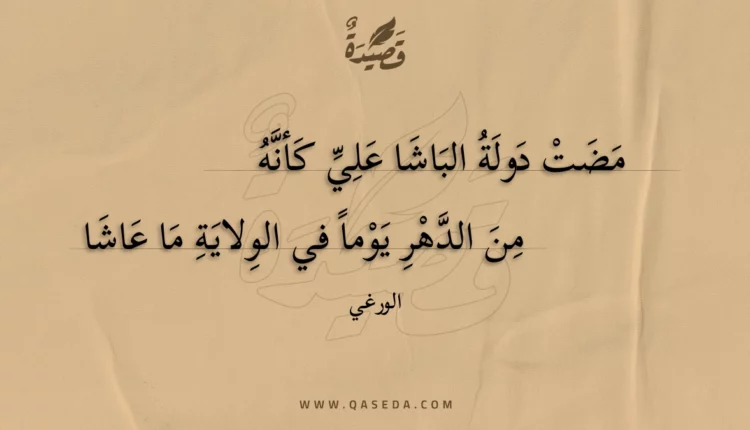 قَصِيدَةٌ
مَضَتْ دَولَةُ البَاشَا عَلِيِّ كَأنَّهُ
مِنَ الدَّهْرِ يَوْماً في الوِلايَةِ مَا عَاشَا
الورغي
WWW.QASEDA.COM